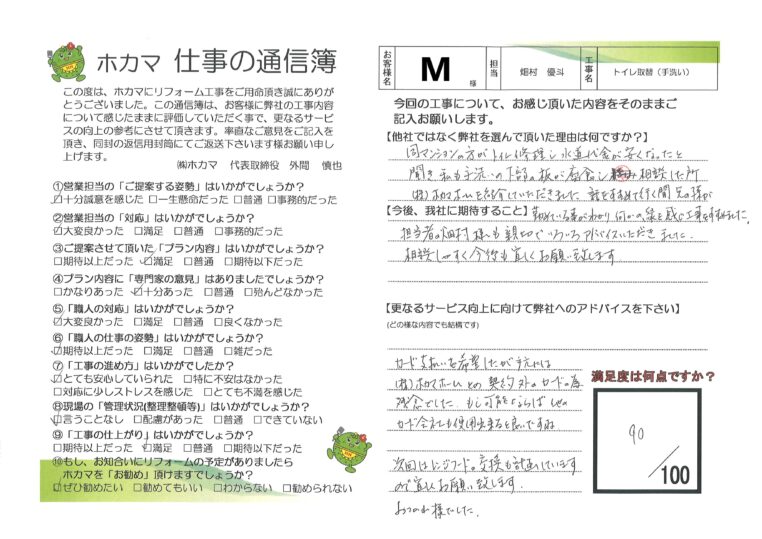 ホカマ 仕事の通信簿
この度は、ホカマにリフォーム工事をご用命頂き誠にありが
とうございました。この通信簿は、お客様に弊社の工事内容
について感じたままに評価していただく事で、更なるサービ
スの向上の参考にさせて頂きます。率直なご意見をご記入を
頂き、同封の返信用封筒にてご返送下さいます様お願い申し
上げます。
㈱ホカマ 代表取締役 外間 慎也
①営業担当の「ご提案する姿勢」はいかがでしょうか?
☑十分誠意を感じた □一生懸命だった □普通 □事務的だった
②営業担当の「対応」はいかがでしょうか?
☑大変良かった □満足 □普通 □事務的だった
③ご提案させて頂いた「プラン内容」はいかがでしょうか?
□期待以上だった ☑満足 □普通 □期待以下だった
④プラン内容に「専門家の意見」はありましたでしょうか?
□かなりあった ☑十分あった □普通 □殆んどなかった
⑤「職人の対応」はいかがでしょうか?
☑大変良かった □満足 □普通 □良くなかった
⑥「職人の仕事の姿勢」はいかがでしょうか?
☑期待以上だった □満足 □普通 □雑だった
⑦「工事の進め方」はいかがでしたか?
☑とても安心していられた □特に不安はなかった
□対応に少しストレスを感じた □とても不満を感じた
⑧現場の「管理状況(整理整頓等)」はいかがでしょうか?
☑言うことなし □配慮があった □普通 □できていない
⑨「工事の仕上がり」はいかがでしょうか?
□期待以上だった ☑満足 □普通 □期待以下だった
⑩もし、お知合いにリフォームの予定がありましたら
ホカマを「お勧め」頂けますでしょうか?
☑ぜひ勧めたい □勧めてもいい □わからない □勧められない
お客様名 M 様 担当 畑村 優斗 工事名 トイレ取替(手洗い)
今回の工事について、お感じ頂いた内容をそのままご
記入お願いします。
【他社ではなく弊社を選んで頂いた理由は何ですか?】
同マンションの方がトイレ修理し水道代金が安くなったと
聞き私も手洗いの下部の板が腐食し 相談した所
(株)ホカマホームを紹介していただきました 話をすすめて行く間 先の様が
【今後、我社に期待すること】
勤めている事がわかり何かの縁と感じ工事をすすめました。
担当者の畑村様も親切でいろいろアドバイスいただきました
相談しやすく今後も宜しくお願い致します
【更なるサービス向上に向けて弊社へのアドバイスを下さい】
(どの様な内容でも結構です)
カード支払いを希望したが手元には
(株)ホカマホームとの契約外のカードの為
残念でした もし可能ならば 他の
カード会社でも使用出来ると良いですね
次回はレンジフードの交換も計画しています
が宜しくお願い致します。
おつかれ様でした。
満足度は何点ですか?
90
/100